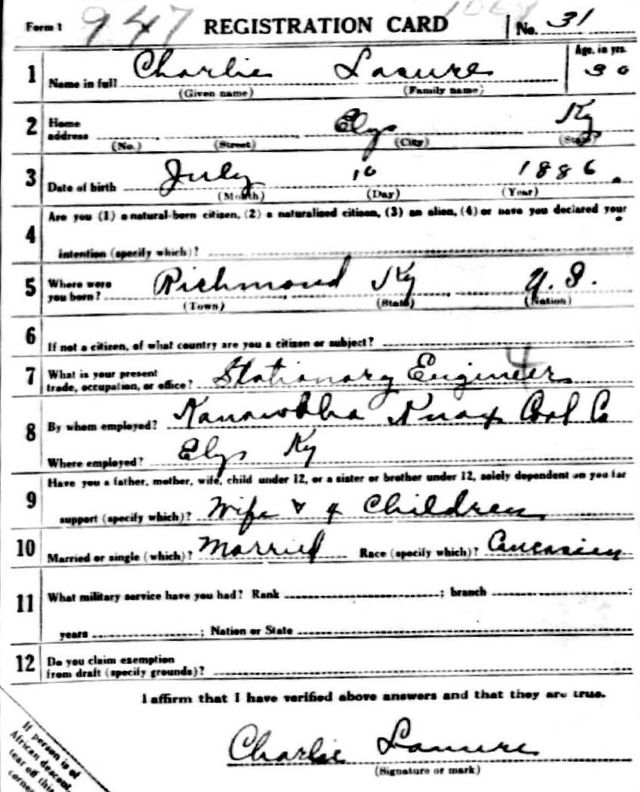 Form 1 947 REGISTRATION CARD No. 31
1 Name in full Charlie Age, in yrs. 30
(Given name) (Family name)
2 Home address Elys Ky
(No.) (Street) (City) (State)
3 Date of birth July 10 1886.
(Month) (Day) (Year)
4 Are you (1) a natural-born citizen, (2) a naturalized citizen, (3) an alien, (4) or have you declared your
intention (specify which)?
5 Where were you born? Richmond Ky U. S.
(Town) (State) (Nation)
6 If not a citizen, of what country are you a citizen or subject?
7 What is your present trade, occupation, or office? Stationary Engineer
8 By whom employed? Knox Coal Co
Where employed? Elys Ky
9 Have you a father, mother, wife, child under 12, or a sister or brother under 12, solely dependent on you for
support (specify which)? Wife & 4 Children
10 Married or single (which)? Married Race (specify which)? Caucasian
11 What military service have you had? Rank ; branch ;
years ; Nation or State
12 Do you claim exemption from draft (specify grounds)?
I affirm that I have verified above answers and that they are true.
Charlie
(Signature or mark)
If person is of
African descent,
tear off this
corner